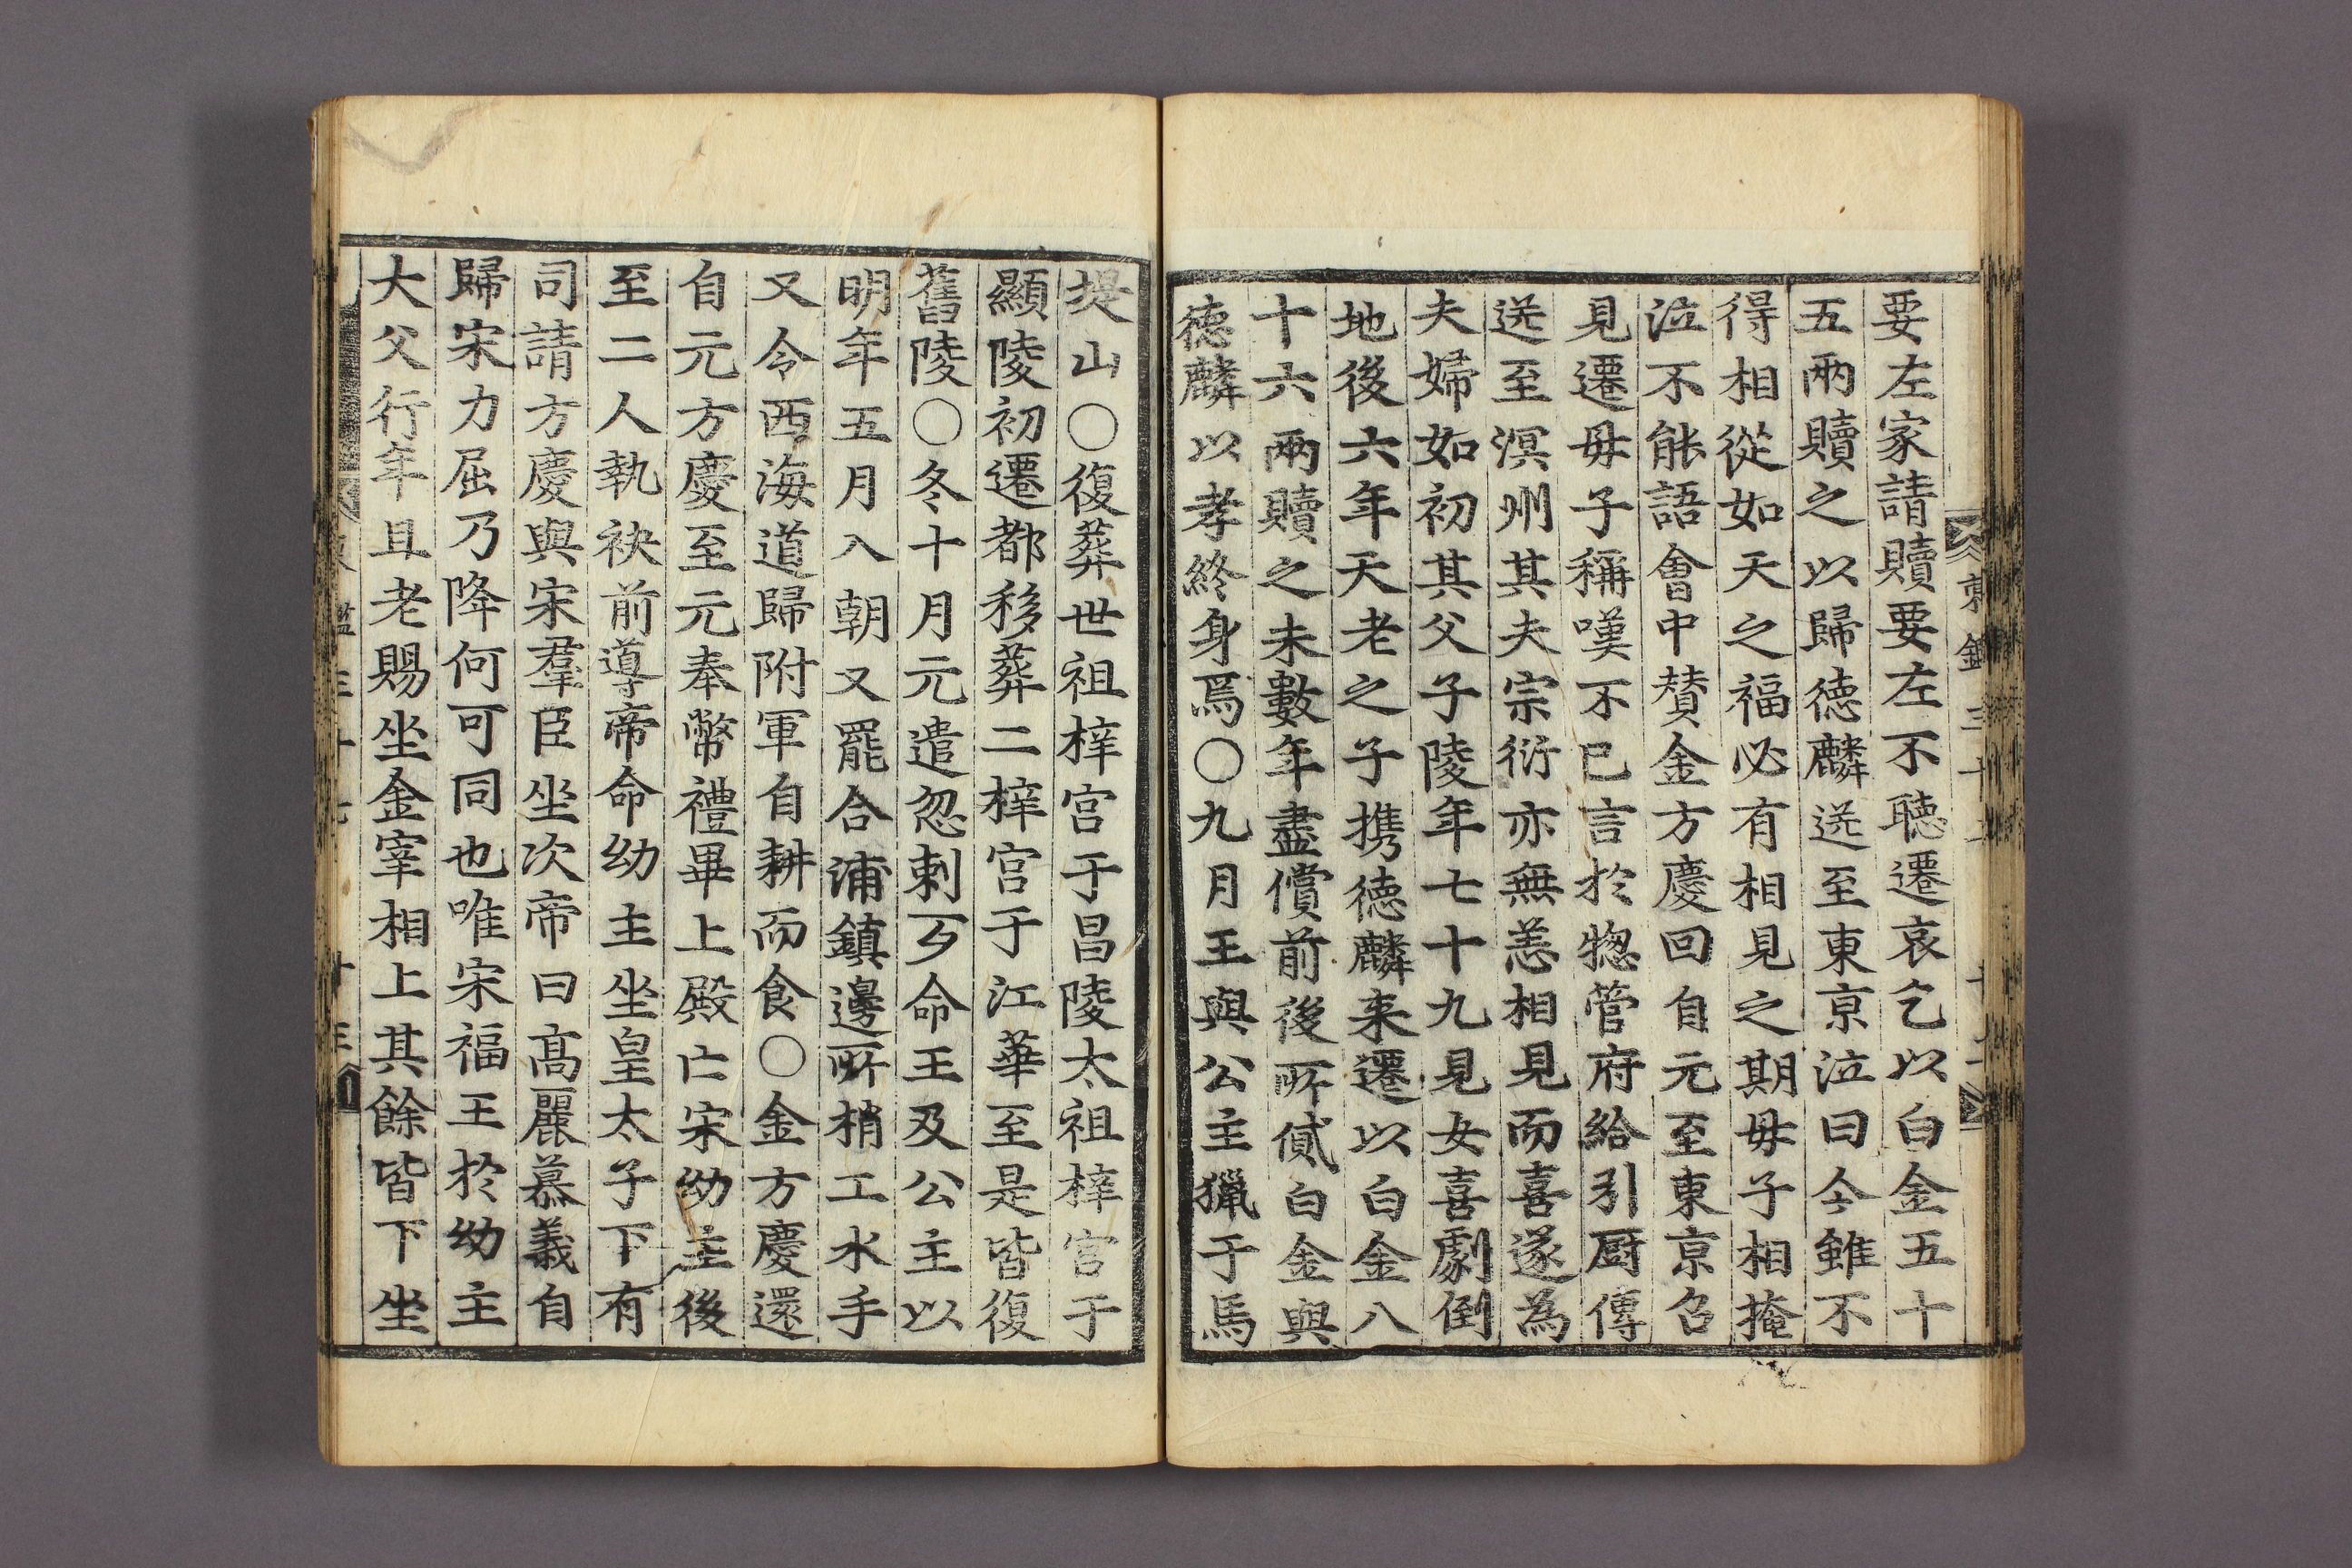 要左家請贖要左不聽遷哀乞以白金五十
五兩贖之以歸德麟送至東京泣曰今雖不
得相從如天之福必有相見之期母子相掩
泣不能語會中賛金方慶回自元至東京召
見遷母子稱嘆不已言於惣管府給引厨傳
送至溟州其夫宗衍亦無恙相見而喜遂為
夫婦如初其父子陵年七十九見女喜劇倒
地後六年天老之子携德麟来遷以白金八
十六兩贖之未數年盡償前後所貸白金與
德麟以孝終身焉○九月王與公主獵于馬
堤山○復葬世祖梓宮于昌陵太祖梓宮于
顯陵初遷都移葬二梓宮于江華至是皆復
舊陵○冬十月元遣忽剌歹命王及公主以
明年五月入朝又罷合浦鎮邊所梢工水手
又令西海道歸附軍自耕而食○金方慶還
自元方慶至元奉幣禮畢上殿亡宋幼主後
至二人執袂前導帝命幼主坐皇太子下有
司請方慶與宋羣臣坐次帝曰高麗慕義自
歸宋力屈乃降何可同也唯宋福王於幼主
大父行年且老賜坐金宰相上其餘皆下坐